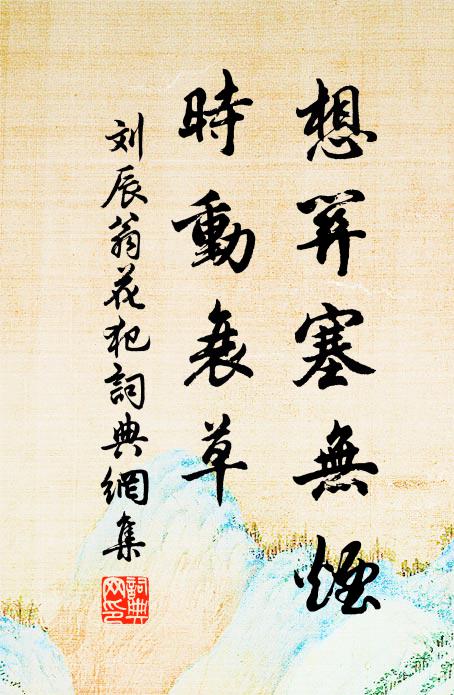 想羿塞無煙
時動衰草
刘辰翁花犯詞典網集
詞典網印